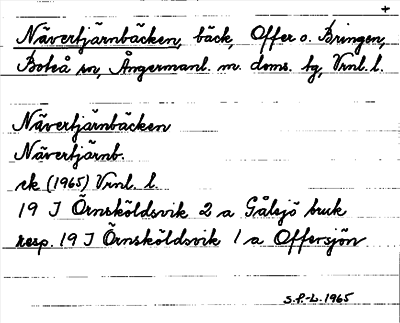 +
Nävertjärnbäcken, bäck, Offer o. Bringen,
Boteå sn, Ångermanl. m. doms. tg, Vrnl. l.
Nävertjärnbäcken
Nävertjärnb.
ek (1965) Vrnl. l.
19 J Örnsköldsvik 2 a Gålsjö bruk
resp. 19 J Örnsköldsvik 1 a Offersjön
S.P.-L. 1965